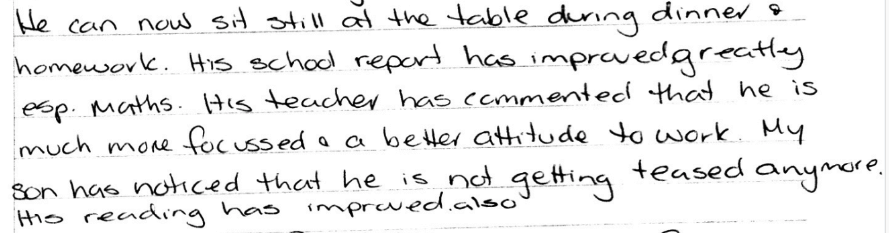 He can now sit still at the table during dinner &
homework. His school report has improved greatly
esp. Maths. His teacher has commented that he is
much more focussed & a better attitude to work. My
son has noticed that he is not getting teased anymore.
His reading has improved.also